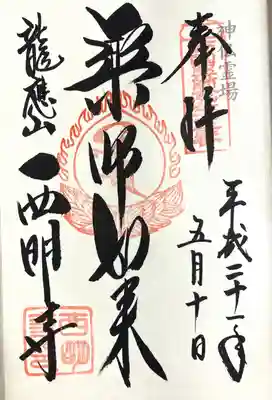 神仏霊場
奉拝
平成二十一年
五月十日
薬师如来
龍應山
西明寺